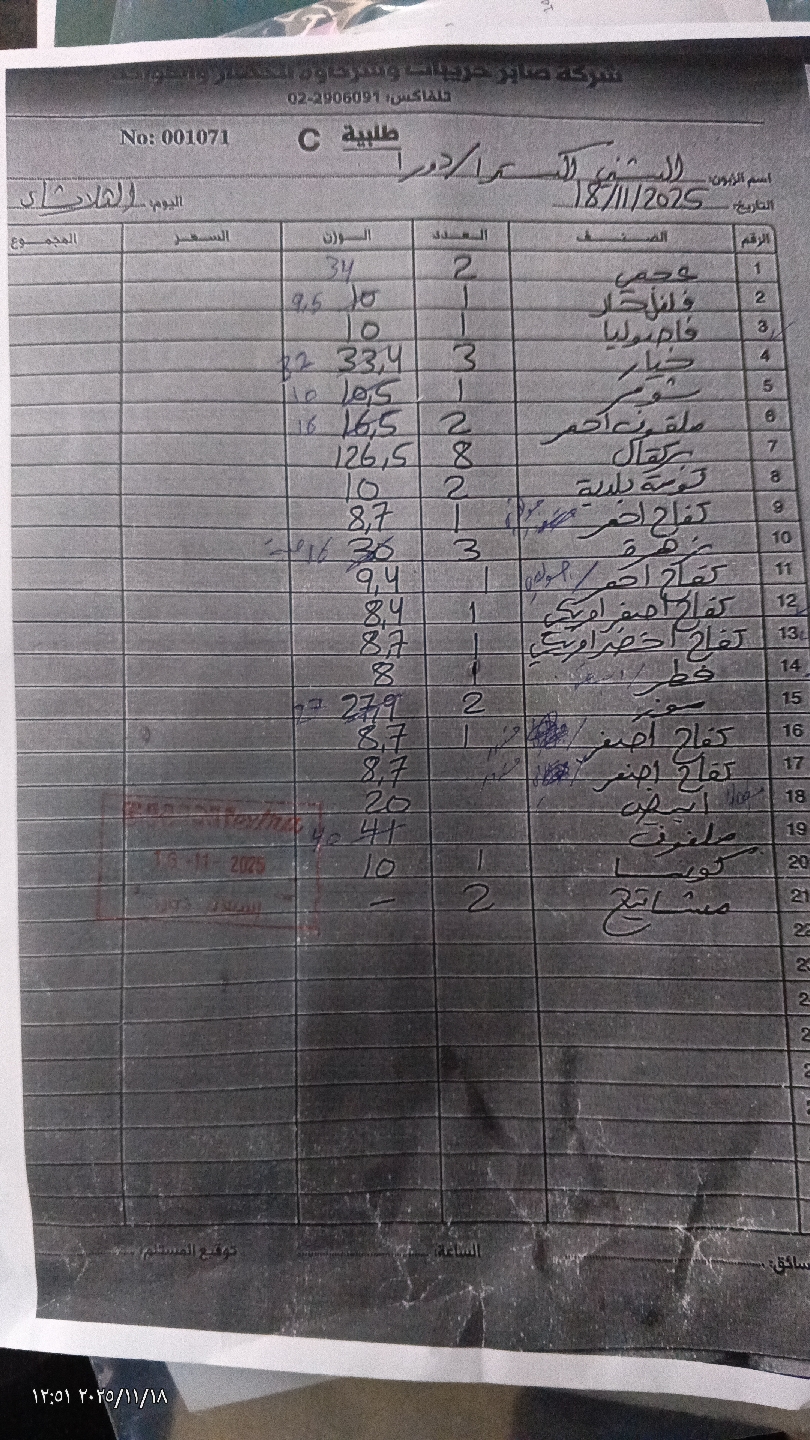 شركة صابر حريبات وشركاؤه للخضار والفواكه
تلفاكس: 02-2906091
No: 001071 طلبية C
اسم الزبون: الشني اكسترا/دورا
التاريخ: 18/11/2025 اليوم: الثلاثاء
الرقم الصنف العدد الوزن السعر المجموع
1 عجمي 2 34
2 فلفل حار 1 10 9,5
3 فاصوليا 1 10
4 خيار 3 33,4 32
5 شومر 1 10,5 10
6 ملفوف احمر 2 16,5 16
7 برتقال 8 126,5
8 كوسة بلدية 2 10
9 تفاح اخضر 1 8,7
10 زهرة 3 30 16
11 تفاح احمر / 1 9,4
12 تفاح اصفر امريكي 1 8,4
13 تفاح اخضر امريكي 1 8,7
14 فطر 1 8
15 موز 2 27,9 27
16 تفاح اصفر / 1 8,7
17 تفاح اصفر / 8,7
18 ابيض 20
19 ملفوف 41 40
20 كوسا 1 10
21 مشاتيح 2 -
22
توقيع المستلم: الساعة: سائق:
2025
١٢:٥١ ٢٠٢٥/١١/١٨